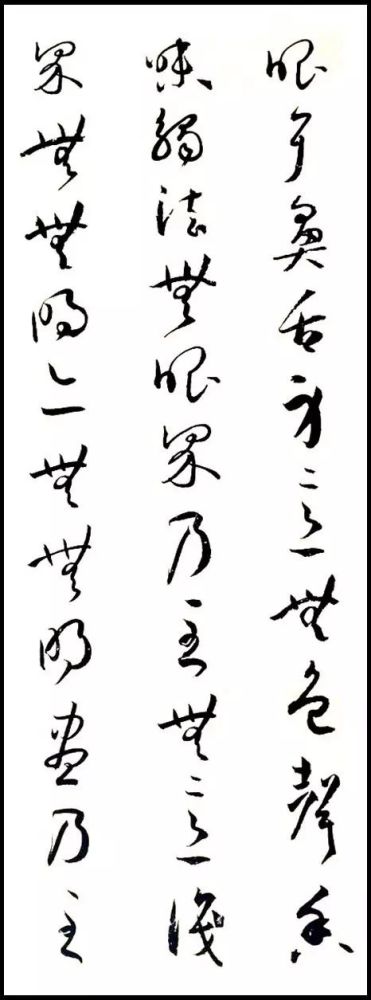 眼耳鼻舌身意無色聲香
味觸法無眼界乃至無意識
界無無明亦無無明盡乃至